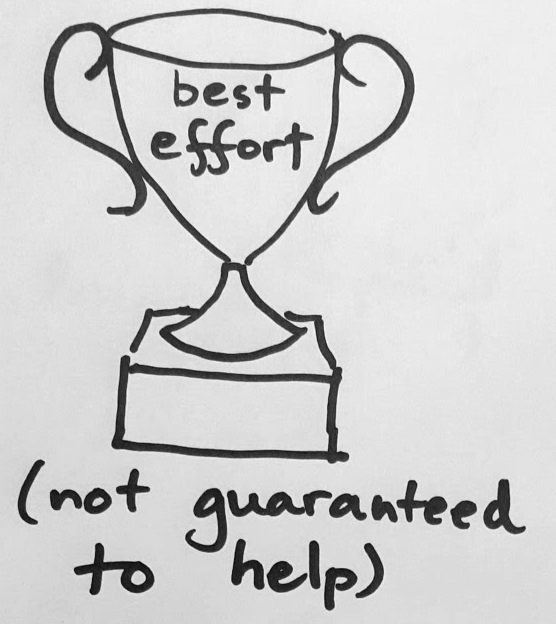 best
effort
(not guaranteed
to help)